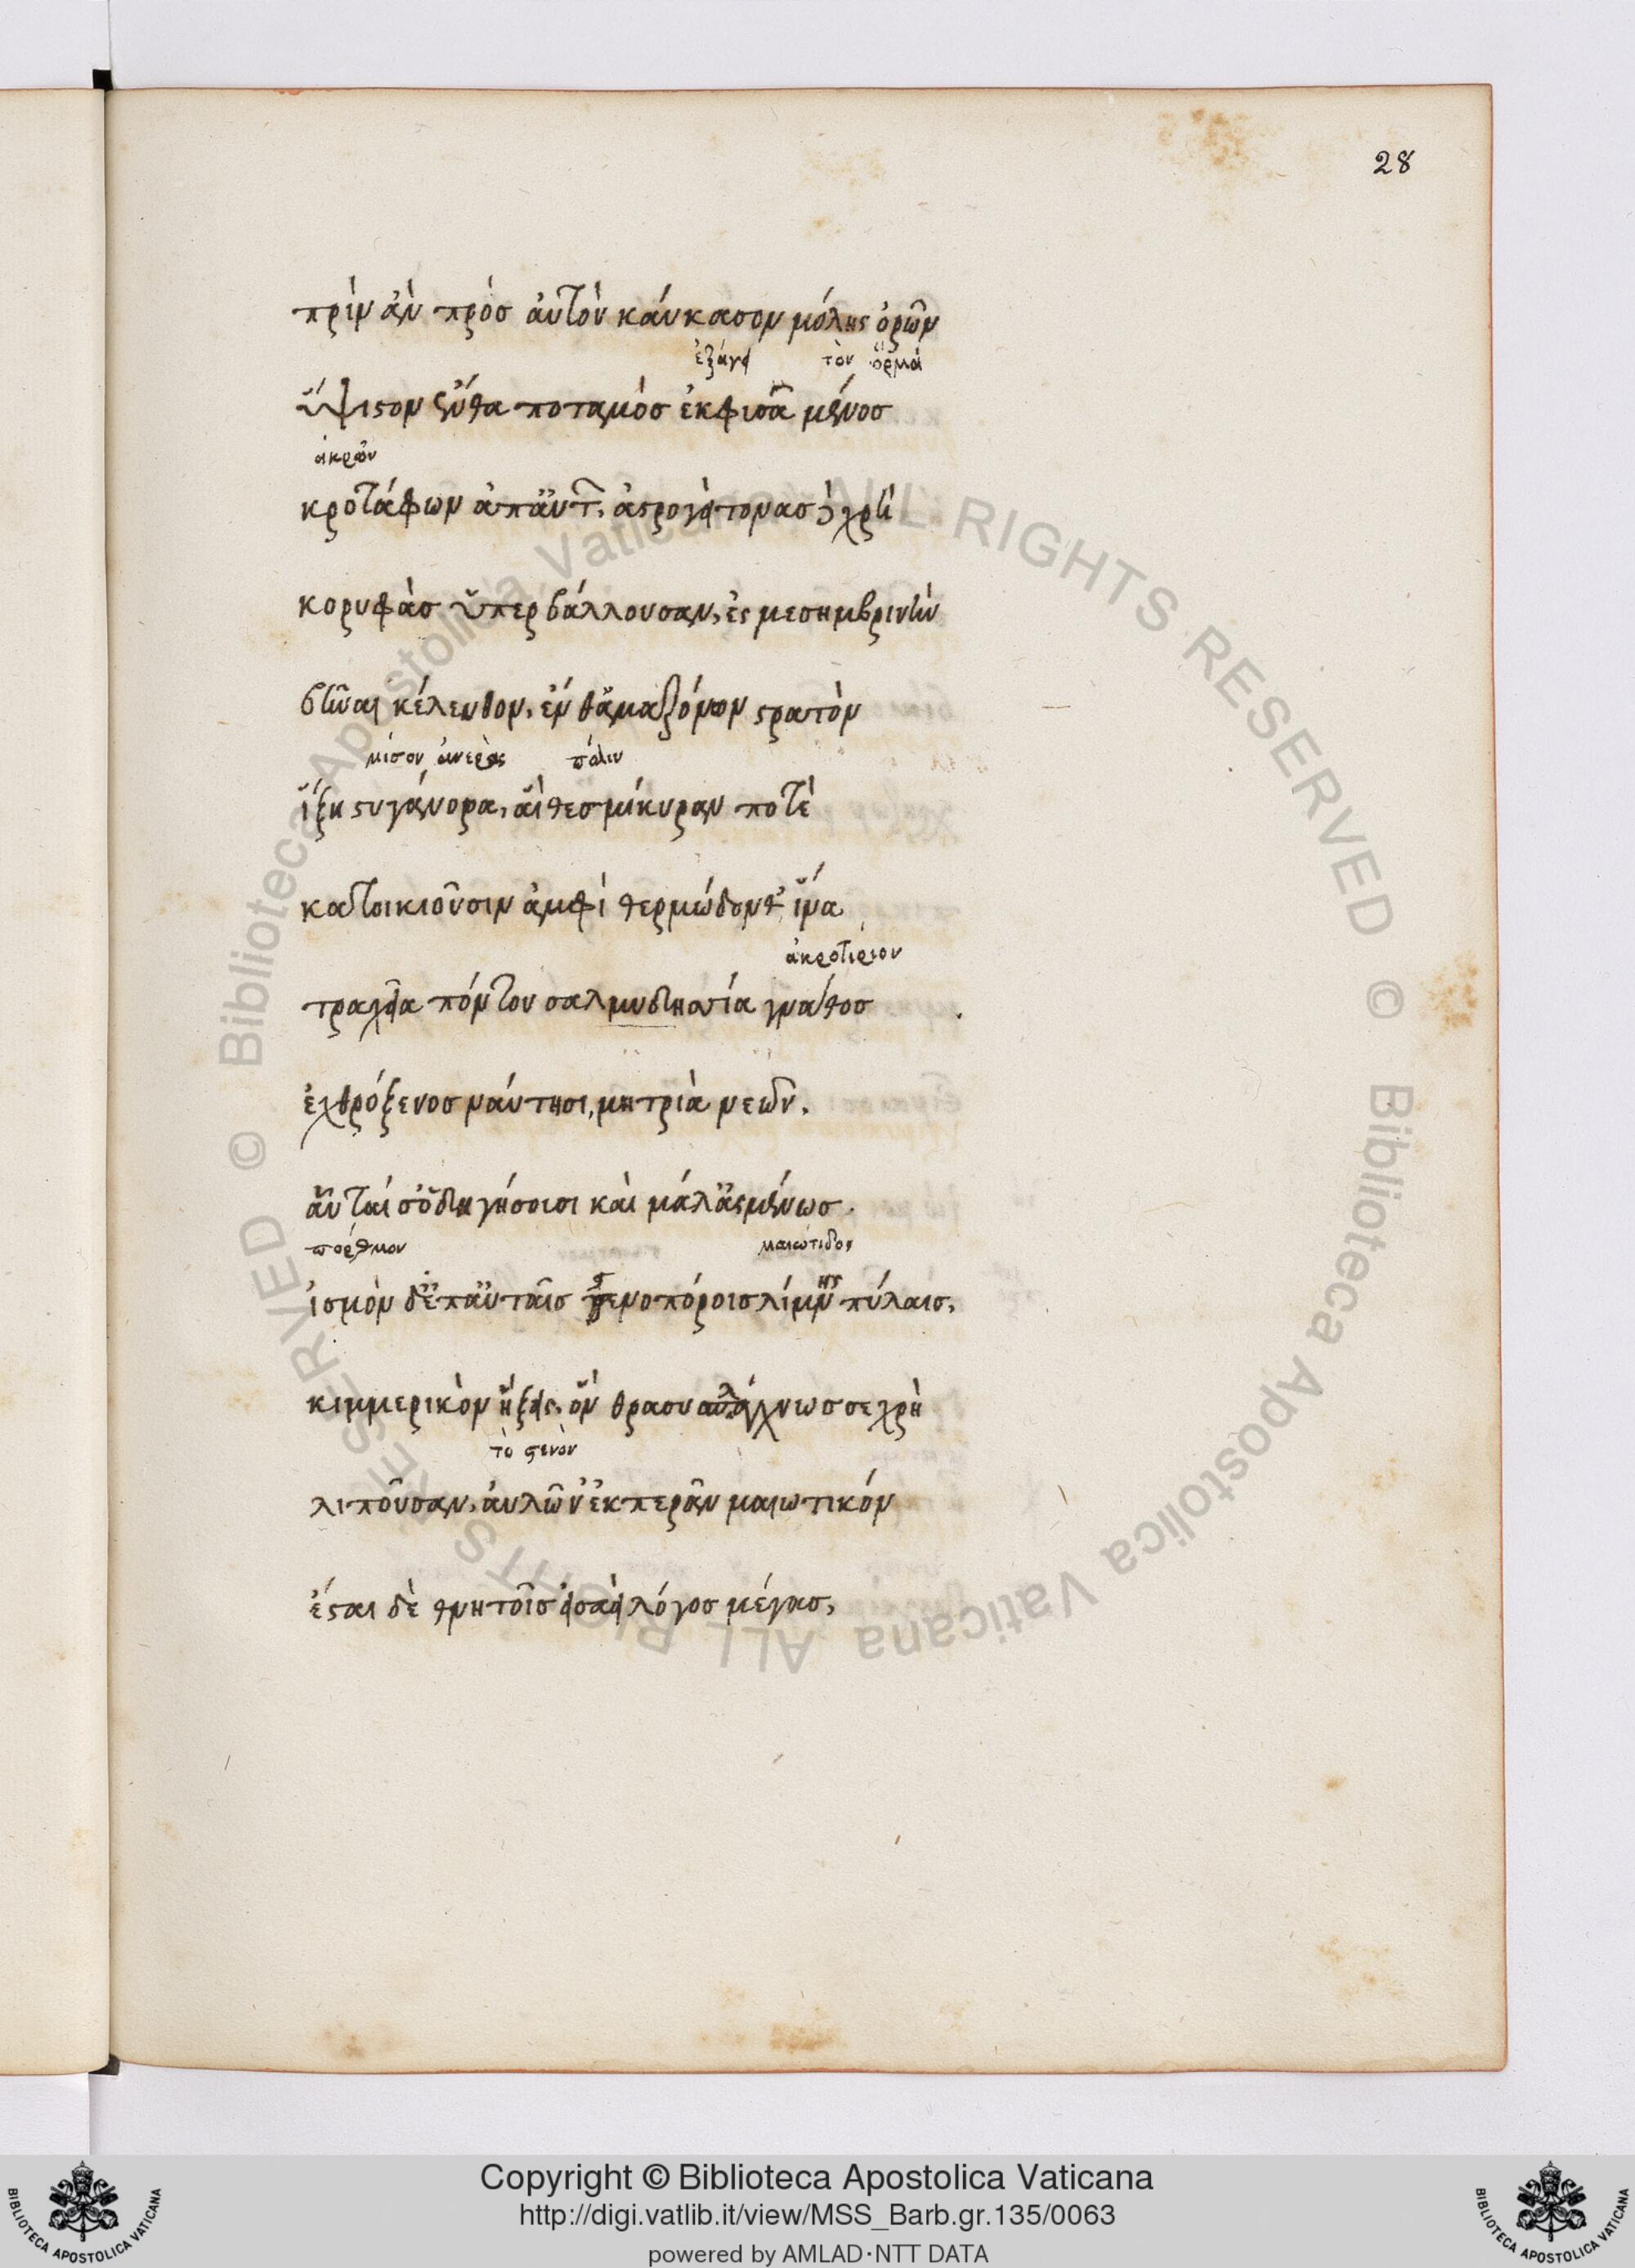 28
πρὶν ἂν πρὸσ ἀυτὸν κάυκασον μόλης ὁρῶν
ἐξάγει τὸν ὅρμά
ὕψιστον ἔνθα ποταμὸσ ἐκφυσᾶ μένοσ
ἀκρῶν
κροτάφων ἀπ' ἀυτ. ἀστρογείτονασ δὲ χρὴ
κορυφὰσ ὑπερβάλλουσαν, ἐς μεσημβρινὴν
βῆναι κέλευθον, ἔνθ' ἀμαζόνων στρατὸν
μίσον ἀνερὰς πάλιν
ἵξη στυγάνορα, ἅι θεσμίκυραν ποτὲ
κατοικιοῦσιν ἀμφὶ θερμώδονθ' ἵνα
ἀκροτίριον
τραχεῖα πόντου σαλμυδησία γνάθοσ
ἐχθρόξενοσ ναύτησι, μητριὰ νεῶν.
ἅυται σ' ὁδηγήσοισι καὶ μάλ' ἀσμένωσ.
πορθμον μαιώτιδος
ἰσμὸν δ' ἐπ' ἀυταῖσ στενοπόροισ λίμνης πύλαισ,
κιμμερικὸν ἥξεις, ὃν θρασυσπλάγχνωσ σε χρὴ
τὸ στενὸν
λιποῦσαν, ἀυλῶν' ἐκπερᾶν μαιωτικόν
ἔσται δὲ θνητοῖσ εἰσαεὶ λόγοσ μέγασ,
© Biblioteca Apostolica Vaticana ALL RIGHTS RESERVED © Biblioteca Apostolica Vaticana ALL RIGHTS RESERVED
Copyright © Biblioteca Apostolica Vaticana
http://digi.vatlib.it/view/MSS_Barb.gr.135/0063
powered by AMLAD·NTT DATA
BIBLIOTECA APOSTOLICA VATICANA
BIBLIOTECA APOSTOLICA VATICANA